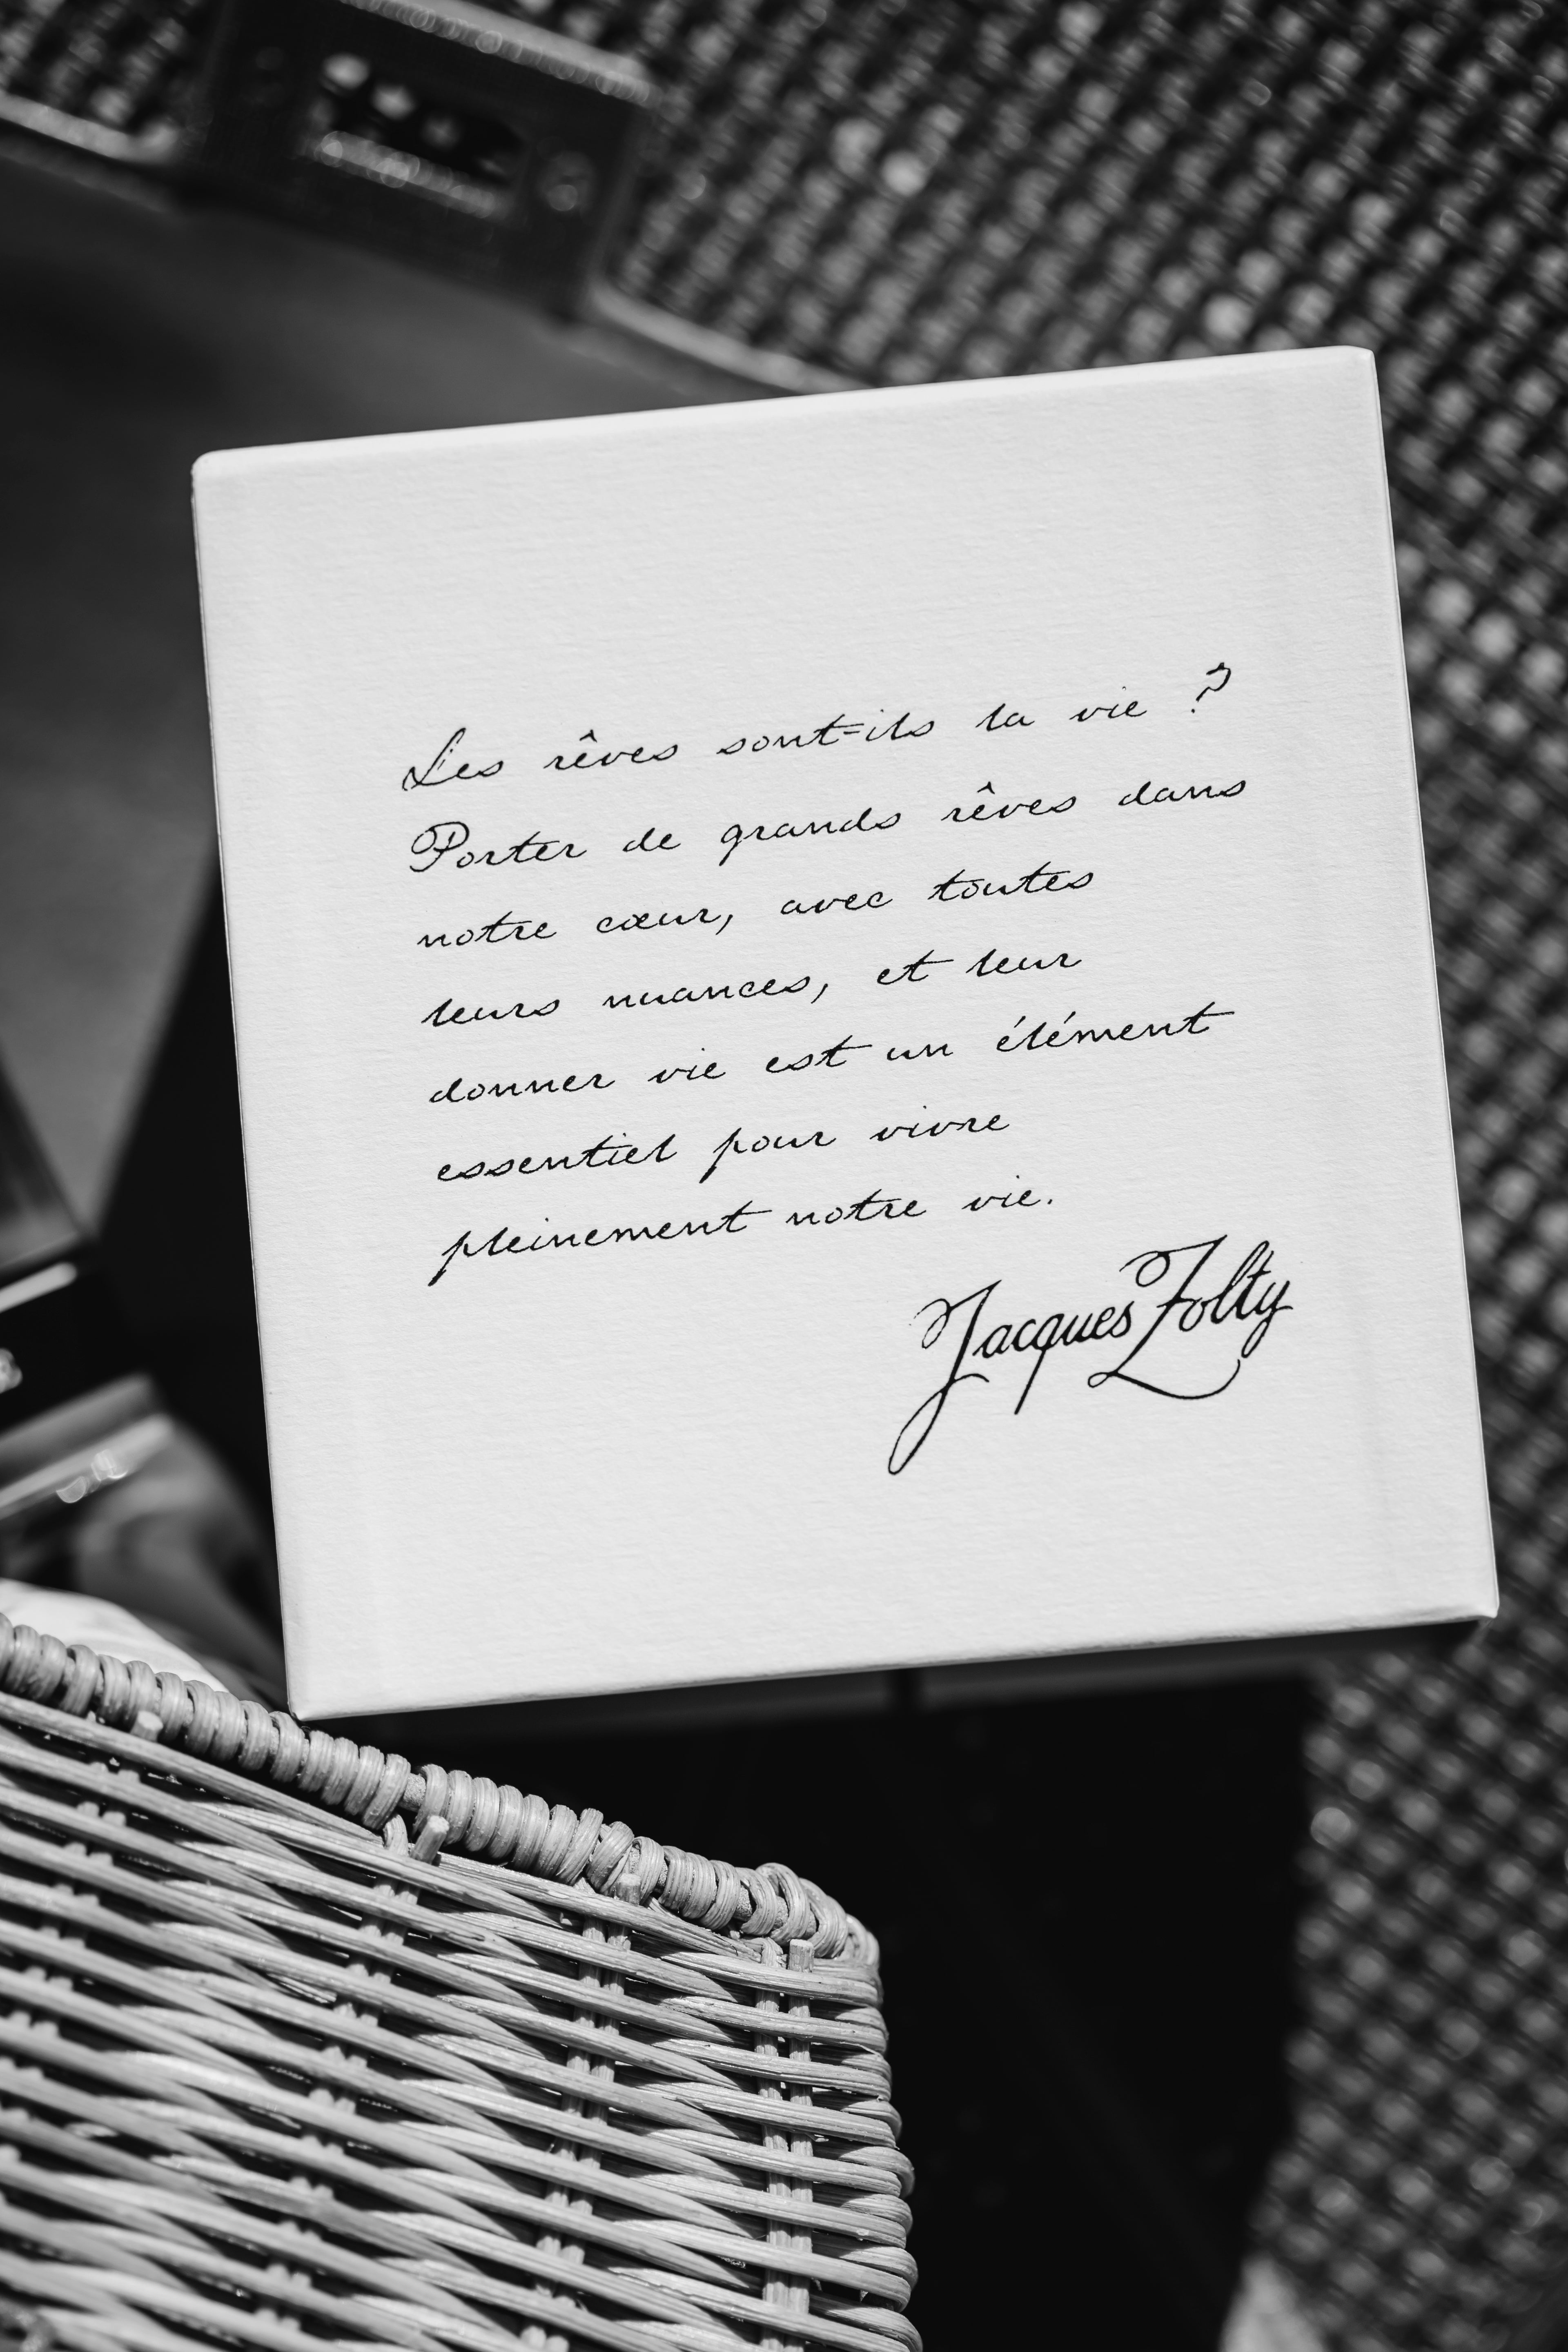 Les rêves sont-ils la vie ?
Porter de grands rêves dans
notre cœur, avec toutes
leurs nuances, et leur
donner vie est un élément
essentiel pour vivre
pleinement notre vie.
Jacques Zolty